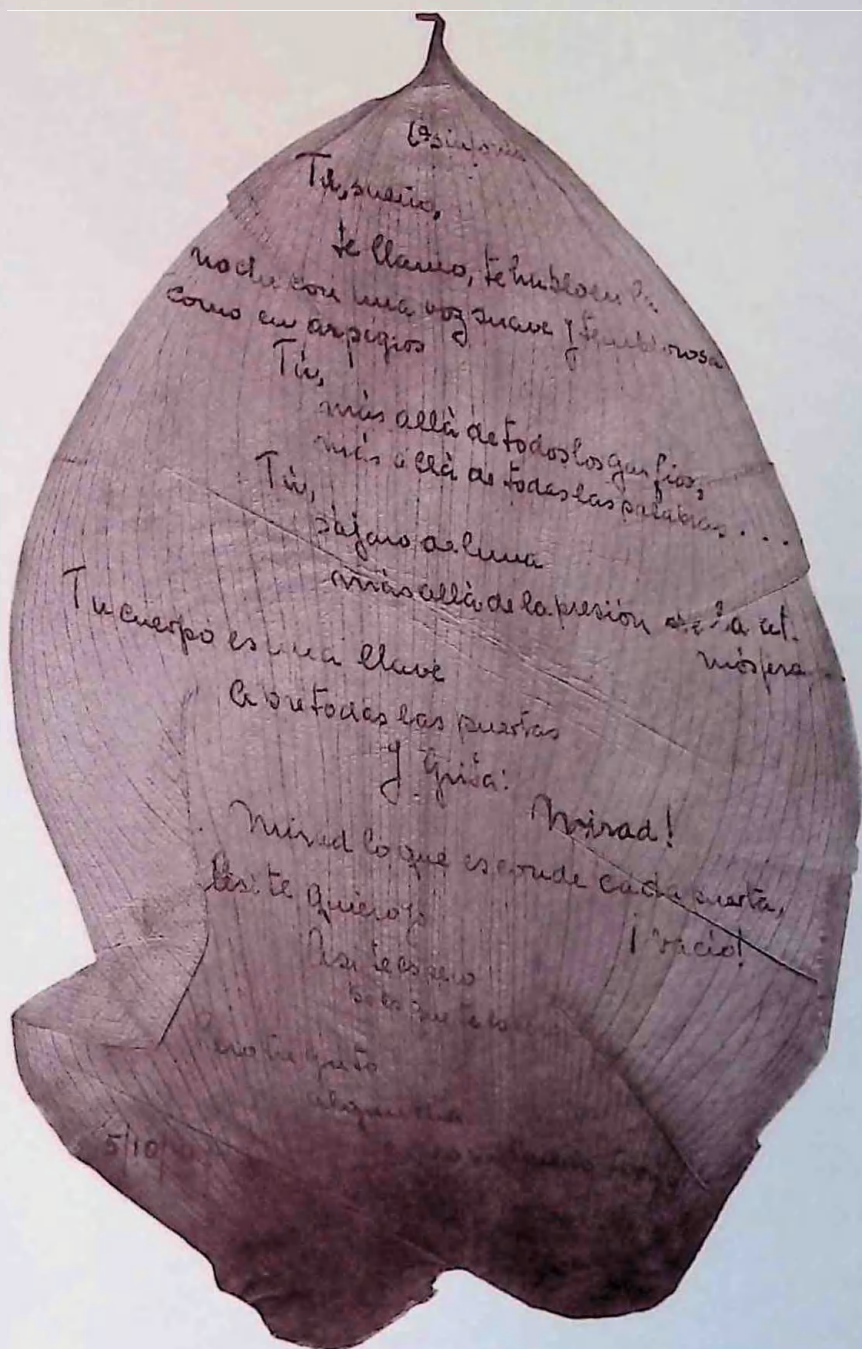 1ª sinfonía
Tú, sueño,
te llamo, te hablo en la
noche con una voz suave y temblorosa
como en arpegios
Tú,
más allà de todos los garfios,
más allà de todas las palabras....
Tú,
pájaro de luna
más allà de la presión de la at-
mósfera...
Tu cuerpo es una llave
abre todas las puertas
y grita:
Mirad!
Mirad lo que esconde cada puerta,
¡vacío!
Así te quiero yo
Así te espero
Pero tu grito
algun día
5/10